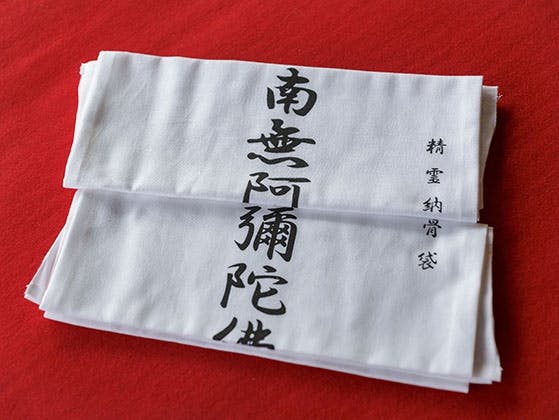 精霊納骨袋
南無阿彌陀佛